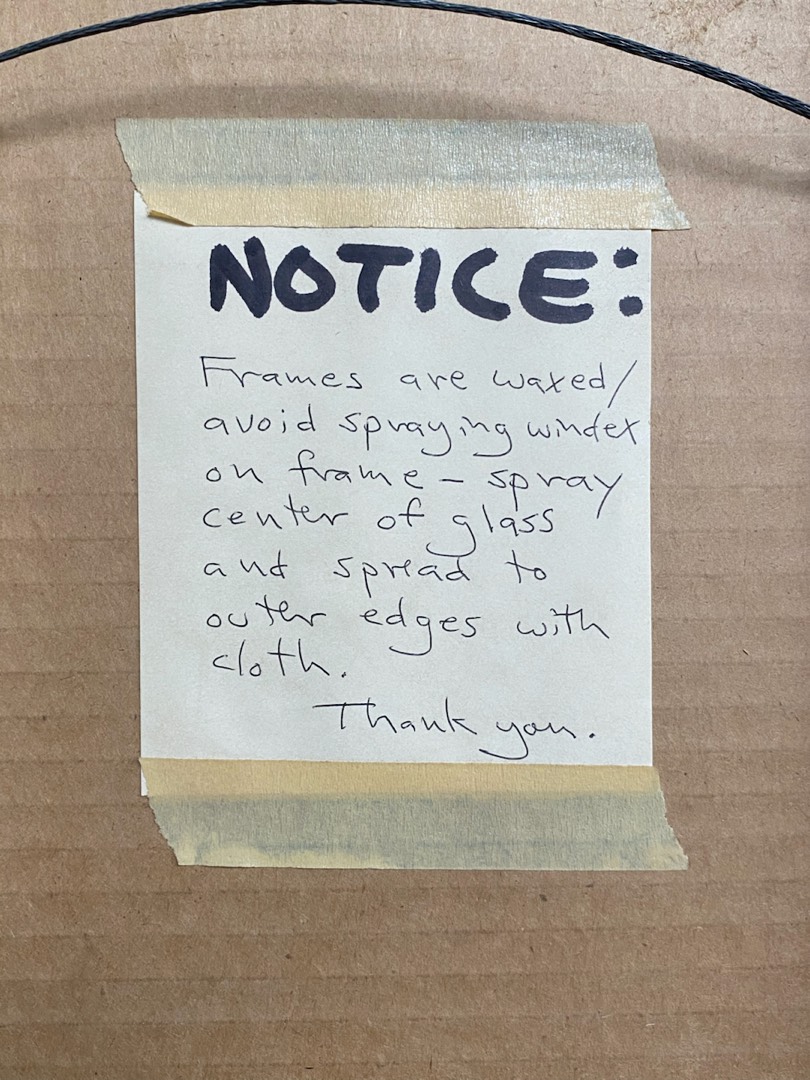 NOTICE:
Frames are waxed/
avoid spraying windex
on frame – spray
center of glass
and spread to
outer edges with
cloth.
Thank you.